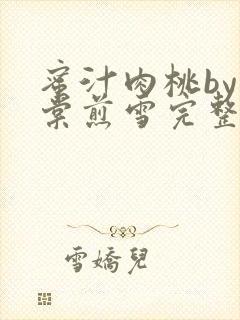 蜜汁肉桃by
棠煎雪完整
雪嬌兒